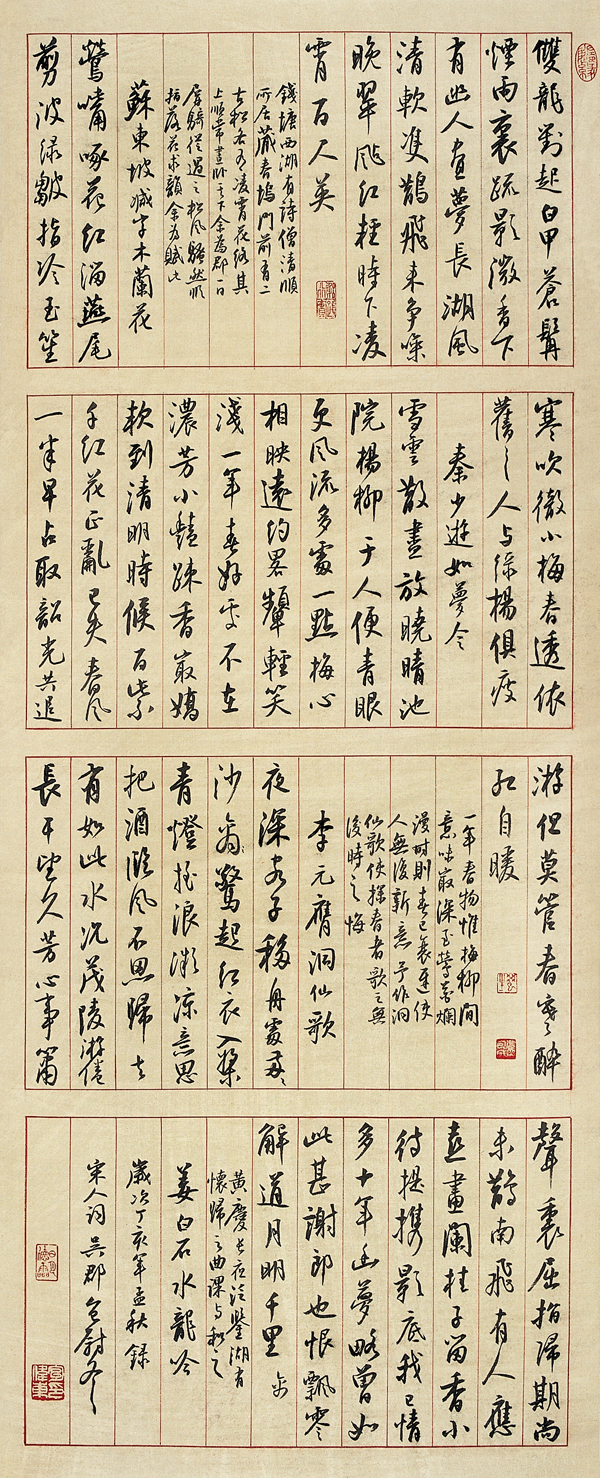 雙龍對起白甲蒼髯
煙雨裏疏影微香下
有幽人晝夢長湖風
清軟雙鵲飛來爭噪
晚翠颭紅輕時下凌
霄百人英
錢塘西湖有詩僧清順
所居藏春塢門前有二
古松各有凌霄花絡其
上順常晝臥其下余為郡一日
屏騎從過之松風騷然順
指落花求韻余為賦此
蘇東坡減字木蘭花
鶯嘴啄花紅溜燕尾
剪波綠皺指冷玉笙
寒吹徹小梅春透依
舊〻人與綠楊俱瘦
秦少游如夢令
雪雲散盡放曉晴池
院楊柳于人便青眼
更風流多處一點梅心
相映遠約畧顰輕笑
淺一年春好處不在
濃芳小艷疎香最嬌
軟到清明時候百紫
千紅花正亂已失春風
一半早占取韶光共追
游但莫管春寒醉
紅自暖
一年春物惟梅柳間
意味最深至鶯花爛
漫時則春已衰遲使
人無復新意予作洞
仙歌使探春者歌之無
後時之悔
李元膺洞仙歌
夜深客子移舟處兩〻
沙禽驚起紅衣入槳
青燈搖浪微涼意思
把酒臨風不思歸去
有如此水況茂陵游倦
長干望久芳心事簫
聲裏屈指歸期尚
未鵲南飛有人應
喜畫闌桂子留香小
待提攜影底我已情
多十年幽夢略曾如
此甚謝郎也恨飄零
解道月明千里
黃慶長夜泛鑒湖有
懷歸之曲課與和之
姜白石水龍吟
歲次丁亥年孟秋錄
宋人詞吳郡